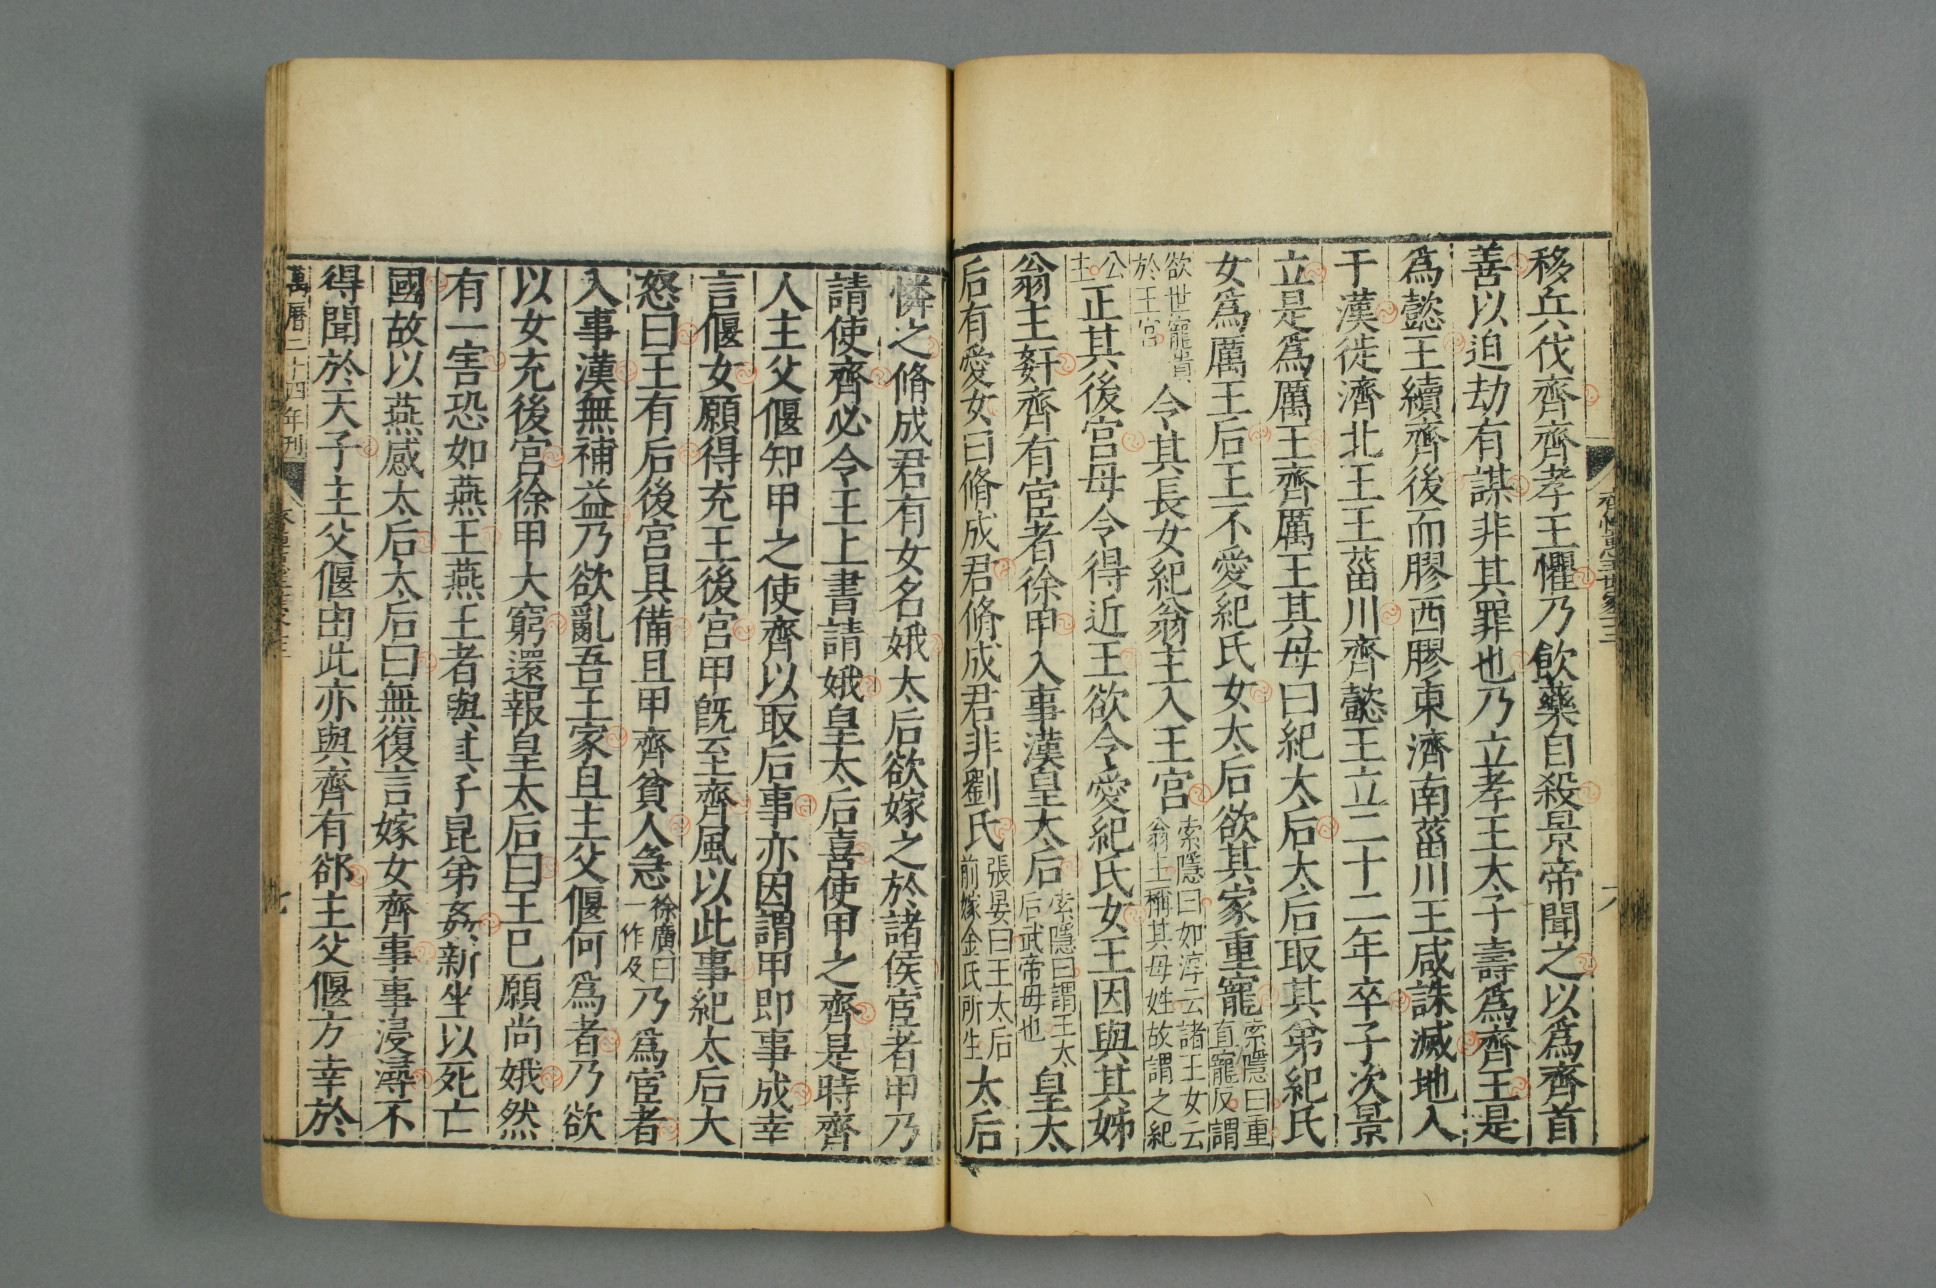 移兵伐齊齊孝王懼乃飲藥自殺景帝聞之以爲齊首
善以迫劫有謀非其罪也乃立孝王太子壽爲齊王是
爲懿王續齊後而膠西膠東濟南菑川王咸誅滅地入
于漢徙濟北王王菑川齊懿王立二十二年卒子次景
立是爲厲王齊厲王其母曰紀太后太后取其弟紀氏
女爲厲王后王不愛紀氏女太后欲其家重寵索隱曰重直寵反謂
欲世寵貴於王宮令其長女紀翁主入王宮索隱曰如淳云諸王女云翁主稱其母姓故謂之紀
公主正其後宮毋令得近王欲令愛紀氏女王因與其姊
翁主姧齊有宦者徐甲入事漢皇太后索隱曰謂王太后武帝母也皇太
后有愛女曰脩成君脩成君非劉氏張晏曰王太后前嫁金氏所生太后
憐之脩成君有女名娥太后欲嫁之於諸侯宦者甲乃
請使齊必令王上書請娥皇太后喜使甲之齊是時齊
人主父偃知甲之使齊以取后事亦因謂甲即事成幸
言偃女願得充王後宮甲旣至齊風以此事紀太后大
怒曰王有后後宮具備且甲齊貧人急徐廣曰一作及乃爲宦者
入事漢無補益乃欲亂吾王家且主父偃何爲者乃欲
以女充後宮徐甲大窮還報皇太后曰王已願尚娥然
有一害恐如燕王燕王者與其子昆弟姦新坐以死亡
國故以燕感太后太后曰無復言嫁女齊事事浸潯不
得聞於天子主父偃由此亦與齊有郤主父偃方幸於
萬曆二十四年刊
七